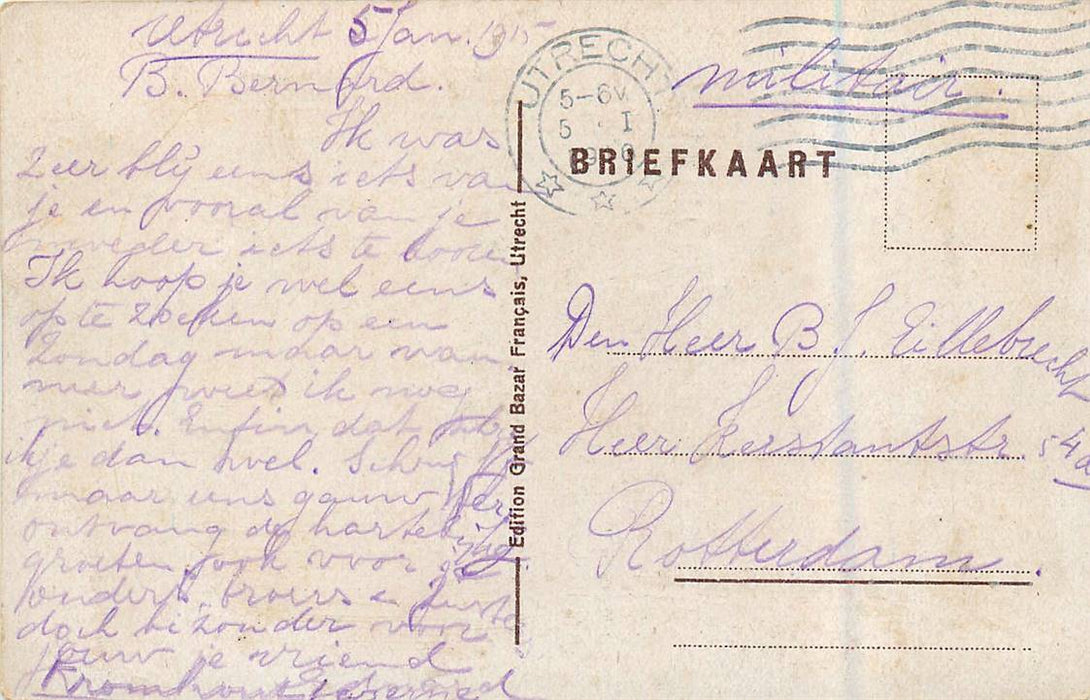 Utrecht 5 Jan. 1915
B. Bernard.
Ik was
zeer blij eens iets van
je en vooral van je
moeder iets te hooren
Ik hoop je wel eens
op te zoeken op een
Zondag maar wan
neer weet ik nog
niet. Enfin dat
je dan wel. Schrijf
maar eens gauw
ontvang de hartelijke
groeten ook voor je
ouders, broers en zusters
doch bizonder voor
jouw je vriend
Kromhout
UTRECHT
5-6V
5 I
militair.
BRIEFKAART
Edition Grand Bazar Français, Utrecht
Den Heer B. J. Eillebrecht
Heer Kerstantstr. 54a
Rotterdam.